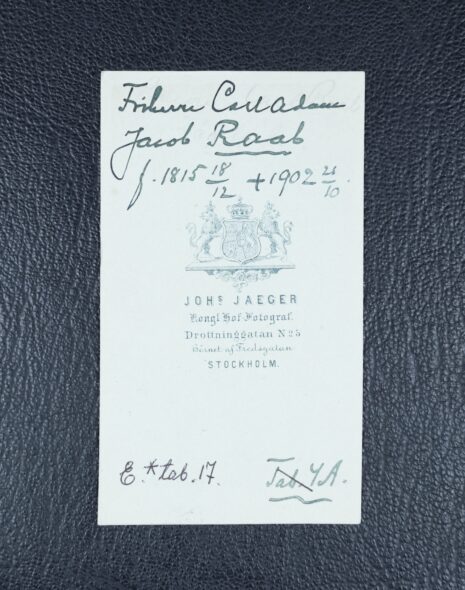 Friherre Carl Adam
Jacob Raab
f. 1815 18/12 + 1902 21/10.
JOHS. JAEGER
Kongl Hof Fotograf.
Drottninggatan No 5
hörnet af Fredsgatan
STOCKHOLM.
E.* tab. 17.
Tab. YA.